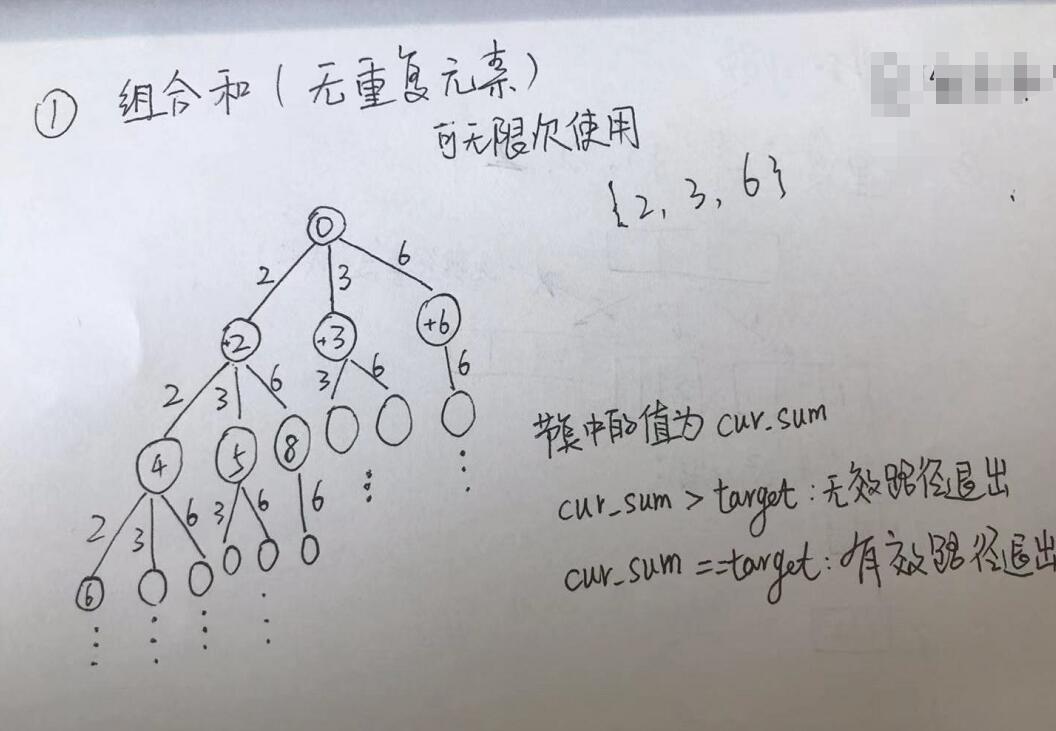 ① 组合和(无重复元素)
可无限次使用
{2, 3, 6}
0
2 3 6
+2 +3 +6
2 3 6 3 6 6
4 5 8
2 3 6 3 6 6
6
中的值为 cur_sum
cur_sum > target : 无效路径退出
cur_sum == target : 有效路径退出